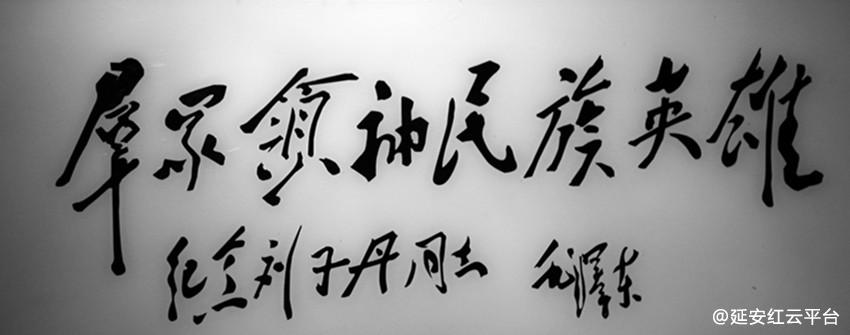 羣眾領袖民族英雄
紀念刘子丹同志 毛澤东
@延安红云平台